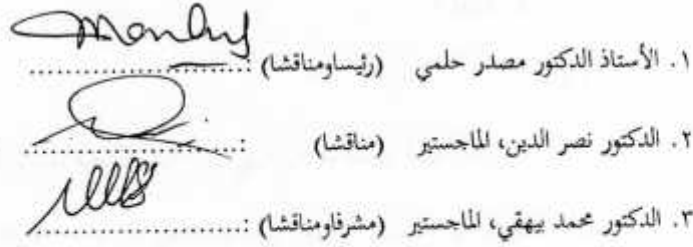 ١. الأستاذ الدكتور مصدر حلمي (رئيساومناقشا) :....................
٢. الدكتور نصر الدين، الماجستير (مناقشا) :....................
٣. الدكتور محمد بيهقي، الماجستير (مشرفاومناقشا) :....................